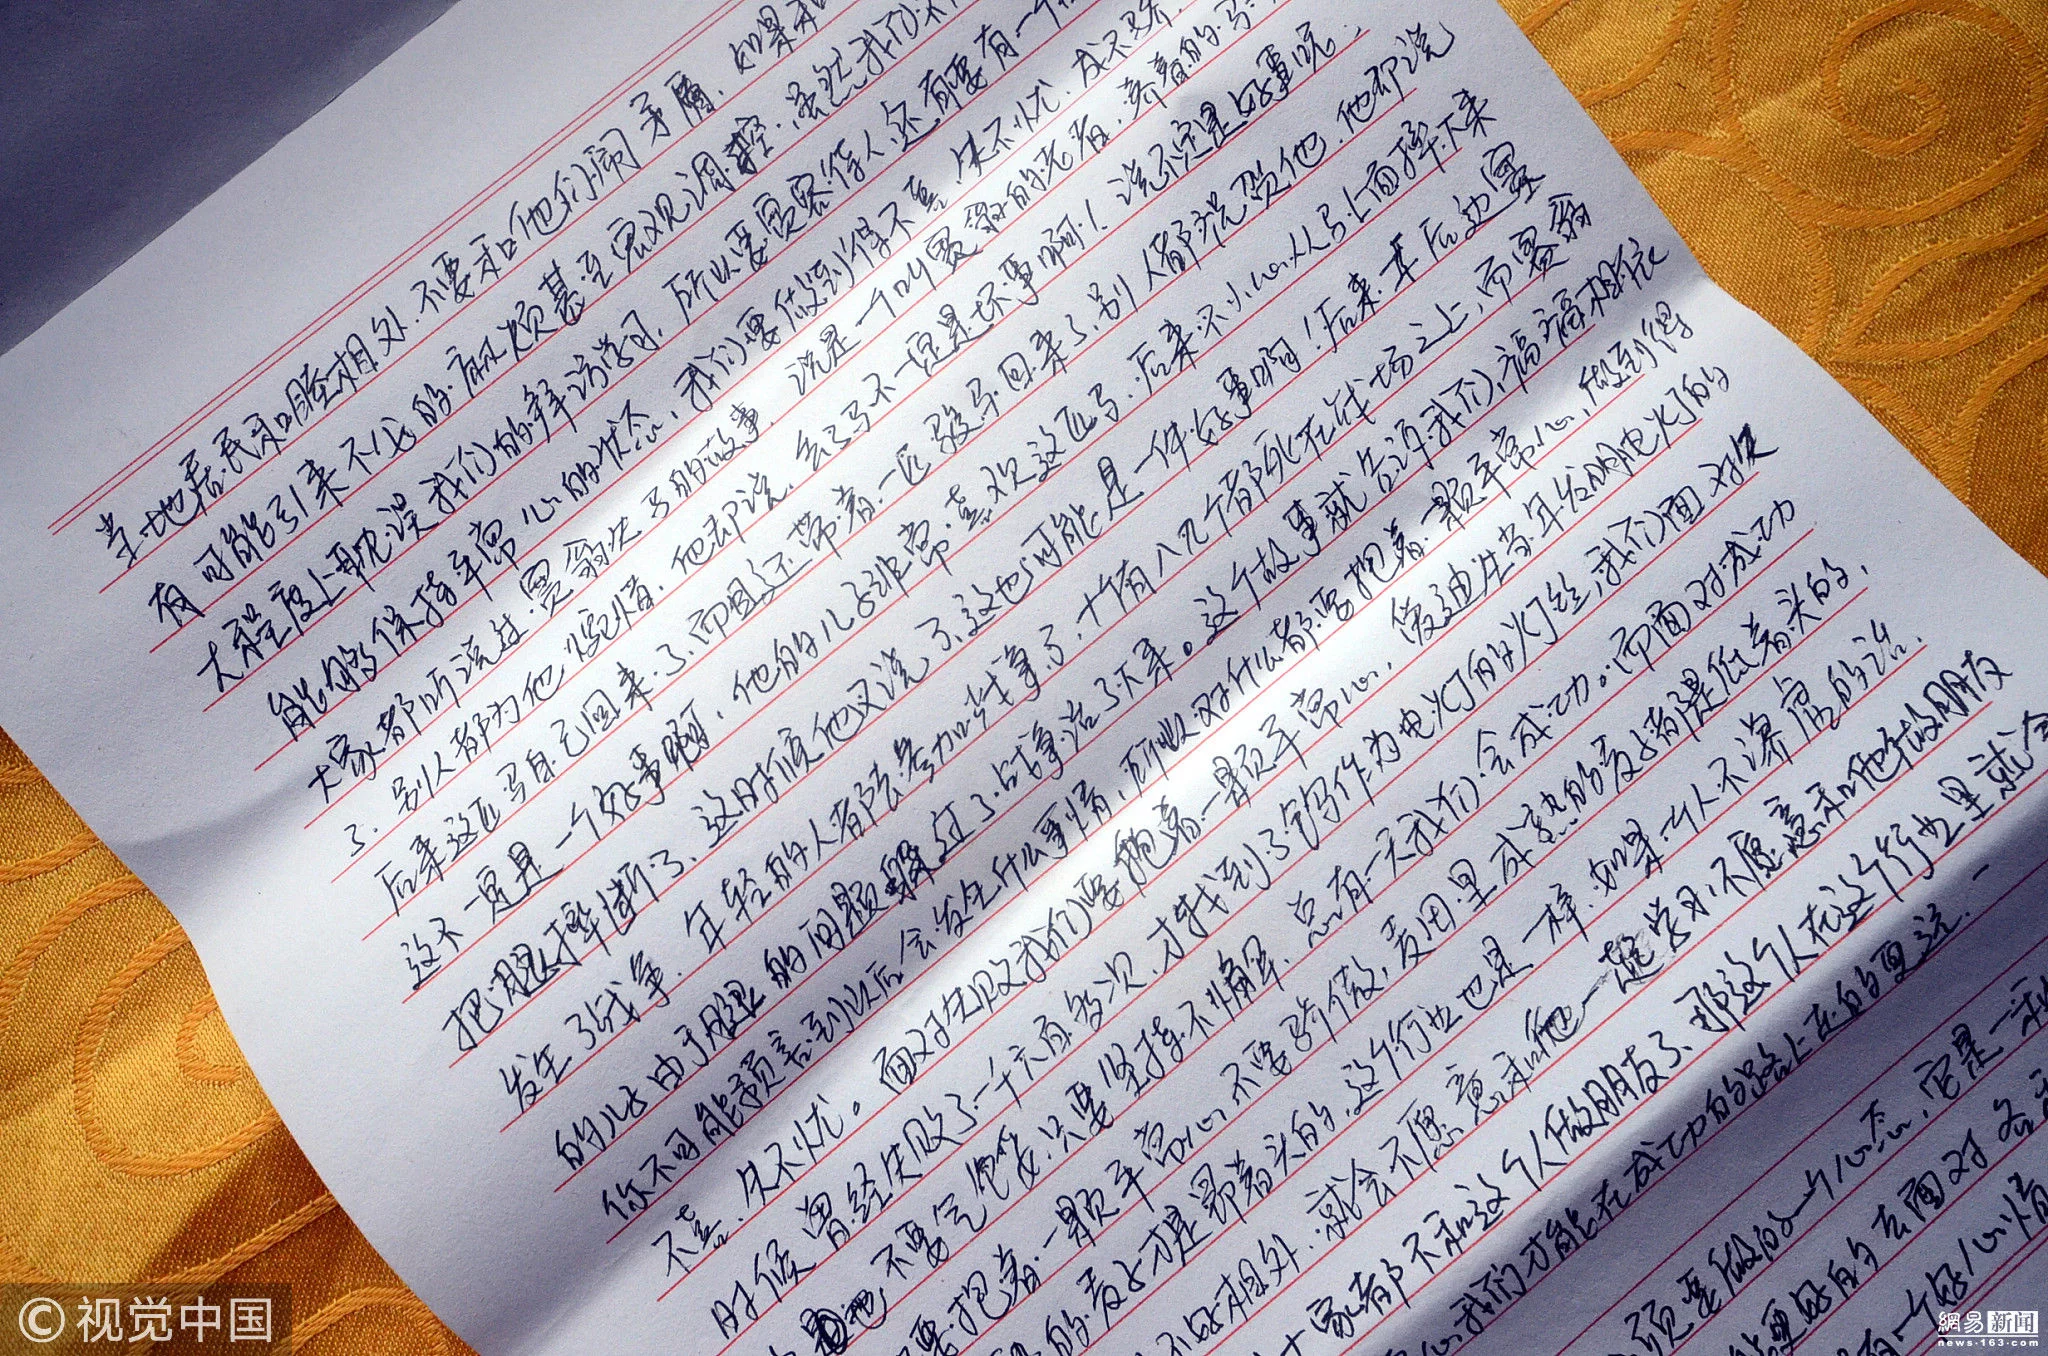 当地居民和睦相处,不要和他们闹矛盾,如果和
有可能引来不必的麻烦甚至宏观调控,虽然我们不
大程度上耽误我们的拜访学习,所以要宽容待人,还有要有一个
能够保持平常心的状态,我们要做到得不喜,失不忧,成不骄,
大家都听说过塞翁失马的故事,说是一个叫塞翁的老者,养着的马
了,别人都为他惋惜,他却说,丢了马不一定是坏事啊!说不定是好事呢,
后来这匹马自己回来了,而且还带着一匹骏马回来了,别人都祝贺他,他却说
这不一定是一个好事啊,他的儿子非常喜欢这匹马,后来不小心从马上面摔下来
把腿摔断了,这时候他又说了,这也可能是一件好事啊!后来,在后边塞
发生了战争,年轻的人都去参加战争了,十有八九个都死在战场之上,而塞翁
的儿子由于腿的问题躲过了战争活了下来。这个故事就告诉我们,福祸相依
你不可能预言到以后会发生什么事情,所以对什么都要抱着一颗平常心,做到得
不喜,失不忧。面对失败我们要抱着一颗平常心,爱迪生当年发明电灯的
时候曾经失败了一千六百多次,才找到了钨丝作为电灯的灯丝,我们面对失
不要气馁,只要坚持不懈,总有一天我们会成功。而面对成功
要抱着一颗平常心,不要骄傲,麦田里成熟的麦子都是低着头的,
的麦子才是昂着头的,这个行业也是一样,如果一人不谦虚的话,
不好相处,就会不愿意和他一起学习,不愿意和他做朋友
家都不和这个人做朋友了,那这个人在这个行业里就会
我们才能在成功的路上走的更远.
须要做的一个心态,它是一种
能更好的去面对各
有一个好心情
© 视觉中国
網易新闻
news.163.com